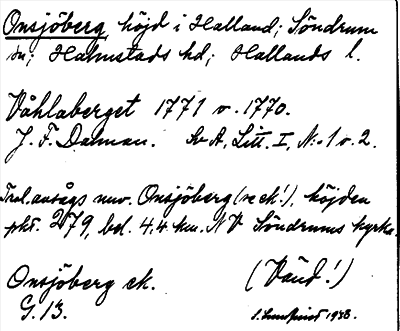 Onsjöberg, höjd i Halland; Söndrum
sn; Halmstads hd; Hallands l.
Våhlaberget 1771 o. 1770.
J. F. Dalman. Sv A, Litt. I, N:o 1 o. 2.
Trol. avsågs nuv. Onsjöberg (ve ek!), höjden
pkt. 279, bel. 4.4 km. NV Söndrums kyrka.
Onsjöberg ek. (Vänd!)
G. 13. S. 1938.